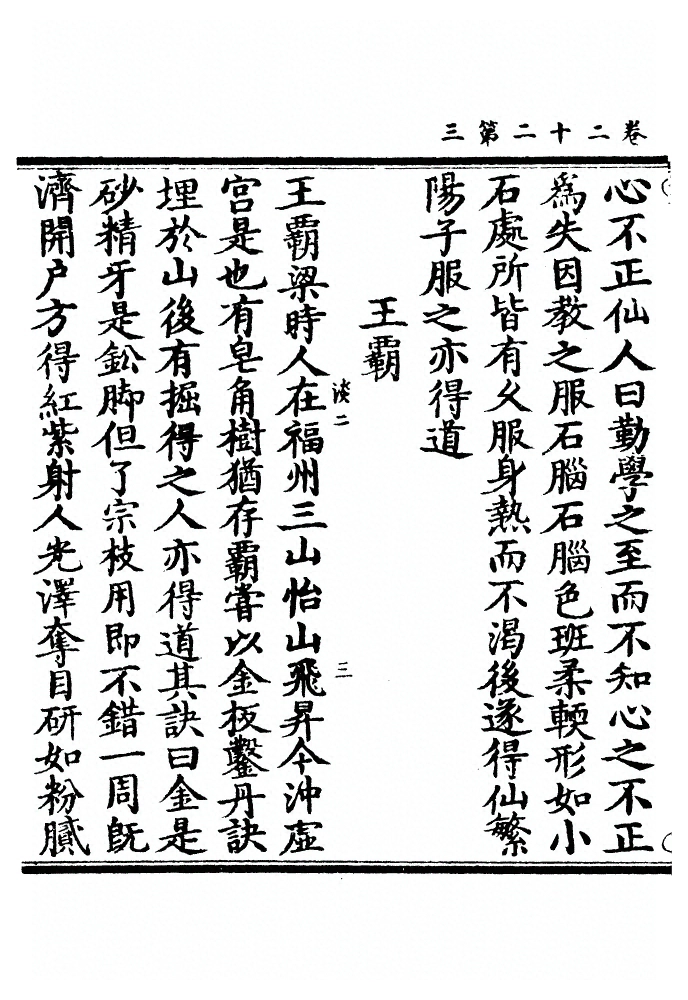 卷二十二第三
心不正仙人曰勤學之至而不知心之不正
爲失因教之服石腦石腦色班柔輭形如小
石處所皆有久服身熱而不渴後遂得仙繁
陽子服之亦得道
王霸
淡二
三
王霸梁時人在福州三山怡山飛昇今沖虛
宮是也有皂角樹猶存霸嘗以金板鑿丹訣
埋於山後有掘得之人亦得道其訣曰金是
砂精牙是鈆脚但了宗枝用即不錯一周旣
濟開户方得紅紫射人光澤奪目研如粉膩